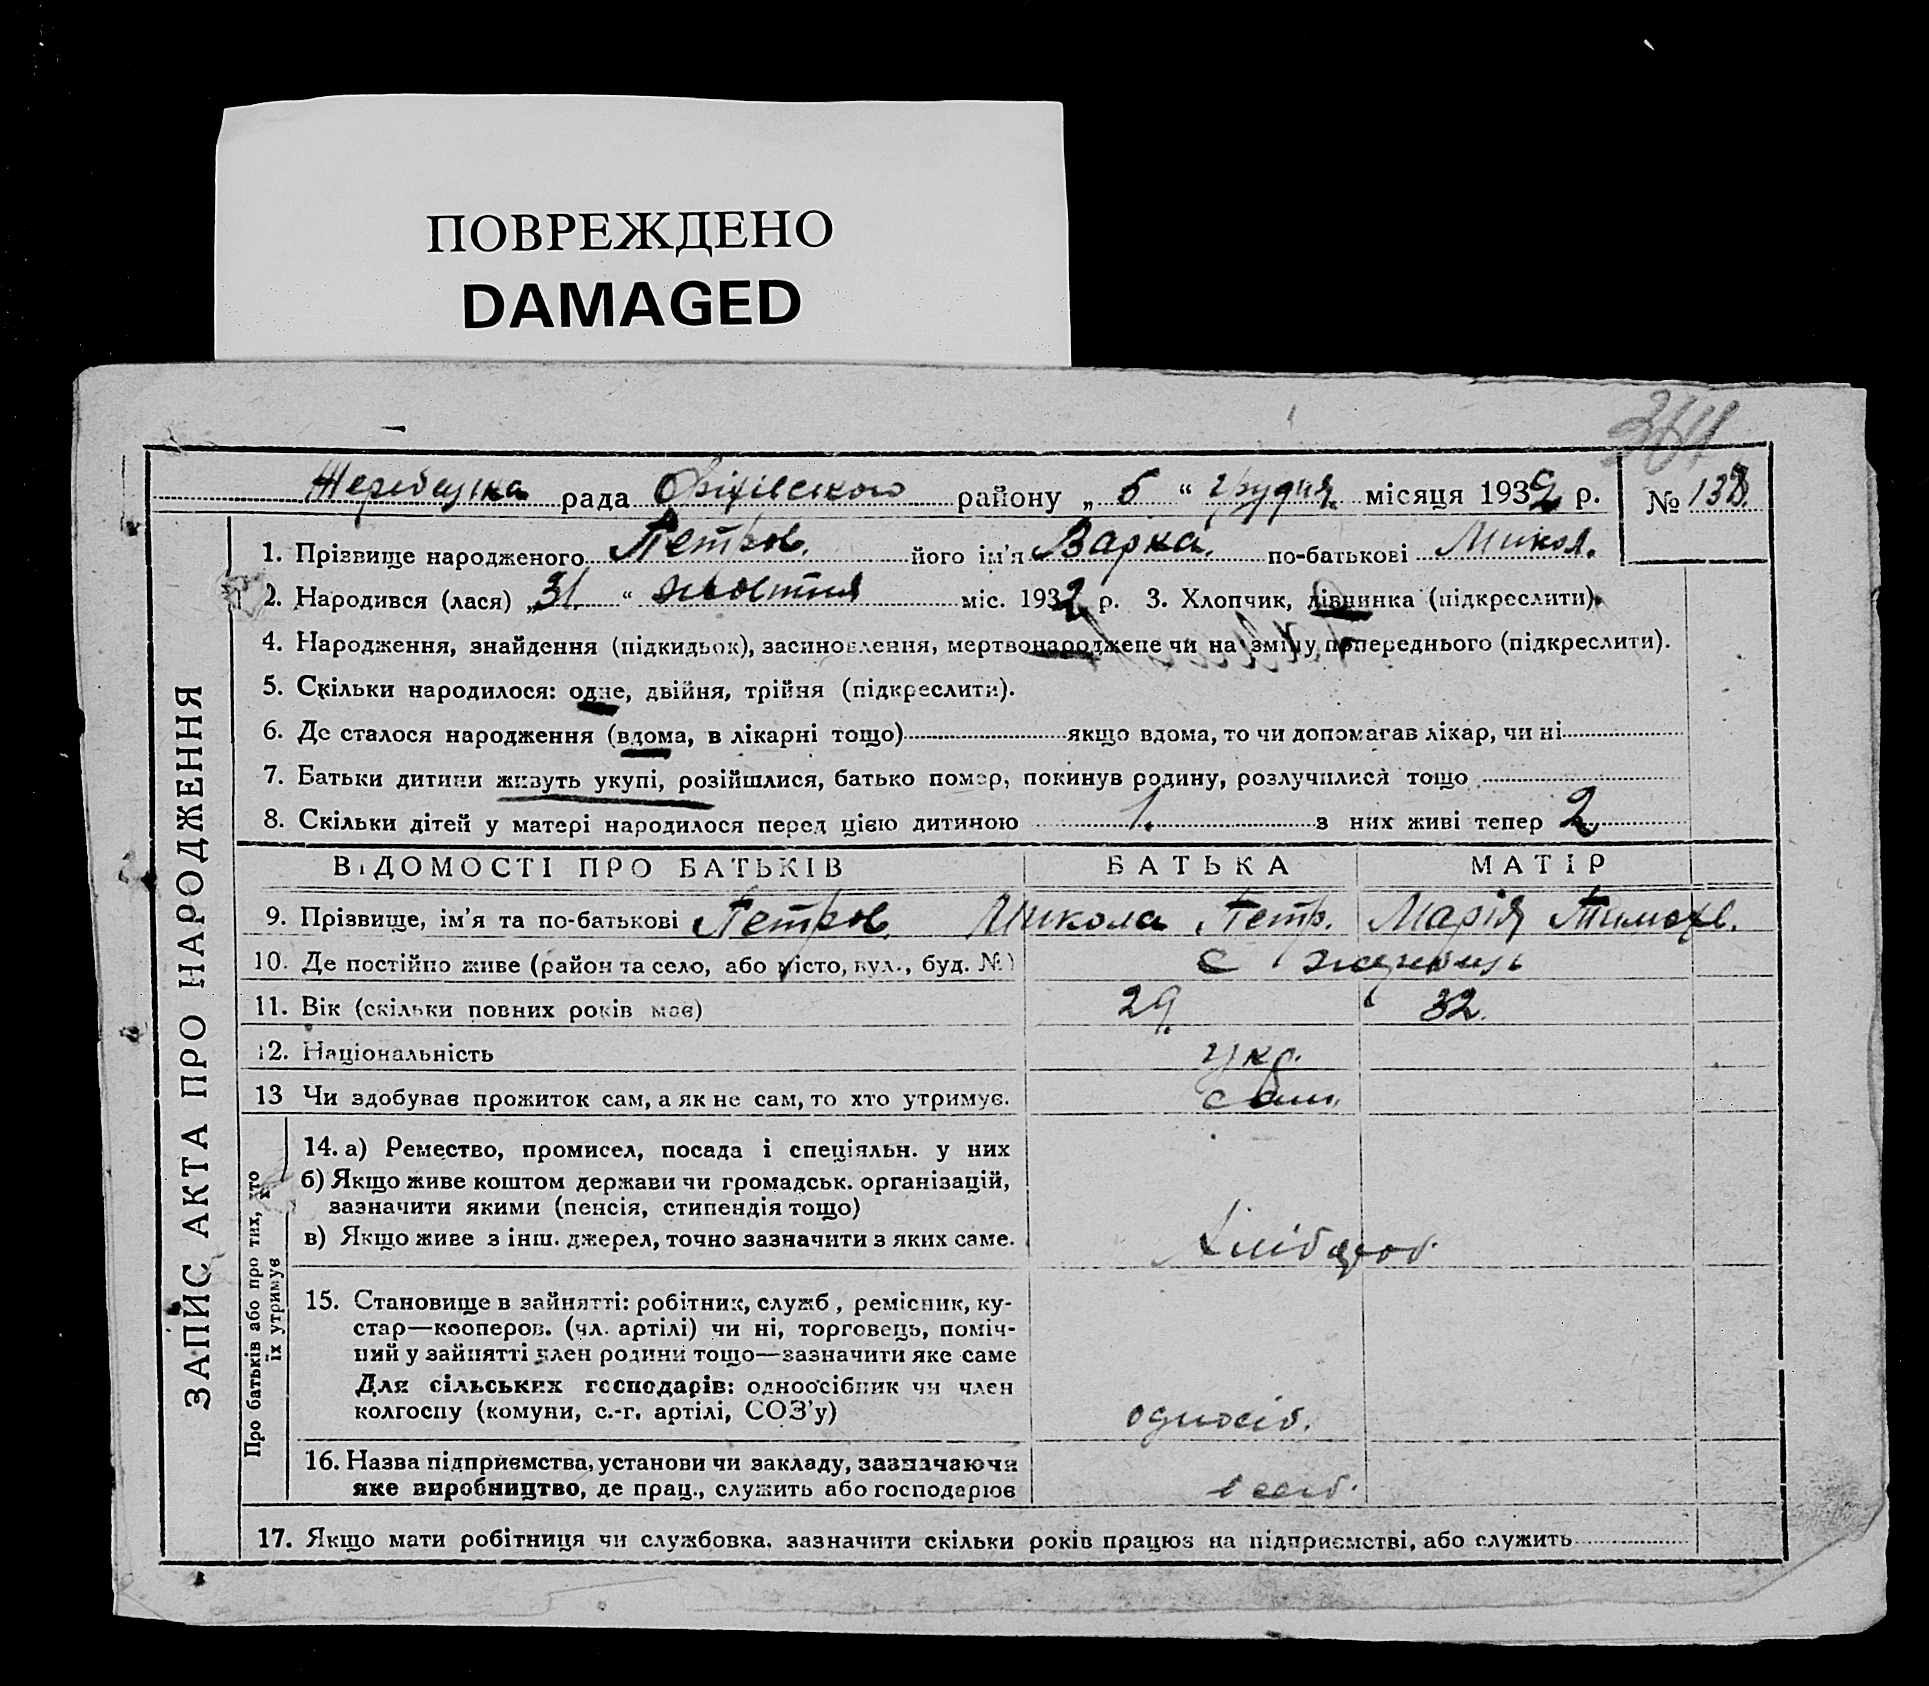 ПОВРЕЖДЕНО
DAMAGED
364
Жеребецька рада Оріхівського району „ 6 “ грудня місяця 1932 р. № 138.
ЗАПИС АКТА ПРО НАРОДЖЕННЯ
1. Прізвище народженого Петров. його ім’я Варка. по-батькові Микол.
2. Народився (лася) „ 31. “ жовтня міс. 1932 р. 3. Хлопчик, дівчинка (підкреслити).
4. Народження, знайдення (підкидьок), засиновлення, мертвонароджене чи на зміну попереднього (підкреслити).
5. Скільки народилося: одне, двійня, трійня (підкреслити).
6. Де сталося народження (вдома, в лікарні тощо) якщо вдома, то чи допомагав лікар, чи ні
7. Батьки дитини живуть укупі, розійшлися, батько помер, покинув родину, розлучилися тощо
8. Скільки дітей у матері народилося перед цією дитиною 1. з них живі тепер 2
ВІДОМОСТІ ПРО БАТЬКІВ БАТЬКА МАТІР
9. Прізвище, ім’я та по-батькові Петров. Микола Петр. Марія Тимофе.
10. Де постійно живе (район та село, або місто, вул., буд. №) с
11. Вік (скільки повних років має) 29. 32.
12. Національність укр.
13 Чи здобуває прожиток сам, а як не сам, то хто утримує. сам.
Про батьків або про тих, хто їх утримує
14. а) Ремество, промисел, посада і спеціяльн. у них
б) Якщо живе коштом держави чи громадськ. організацій,
зазначити якими (пенсія, стипендія тощо)
в) Якщо живе з інш. джерел, точно зазначити з яких саме. Хлібороб.
15. Становище в зайнятті: робітник, служб, ремісник, ку-
стар—кооперов. (чл. артілі) чи ні, торговець, поміч-
ний у зайнятті член родини тощо—зазначити яке саме
Для сільських господарів: одноосібник чи член
колгоспу (комуни, с.-г. артілі, СОЗ’у) одноосіб.
16. Назва підприємства, установи чи закладу, зазначаючи
яке виробництво, де прац., служить або господарює
17. Якщо мати робітниця чи службовка, зазначити скільки років працює на підприємстві, або служить